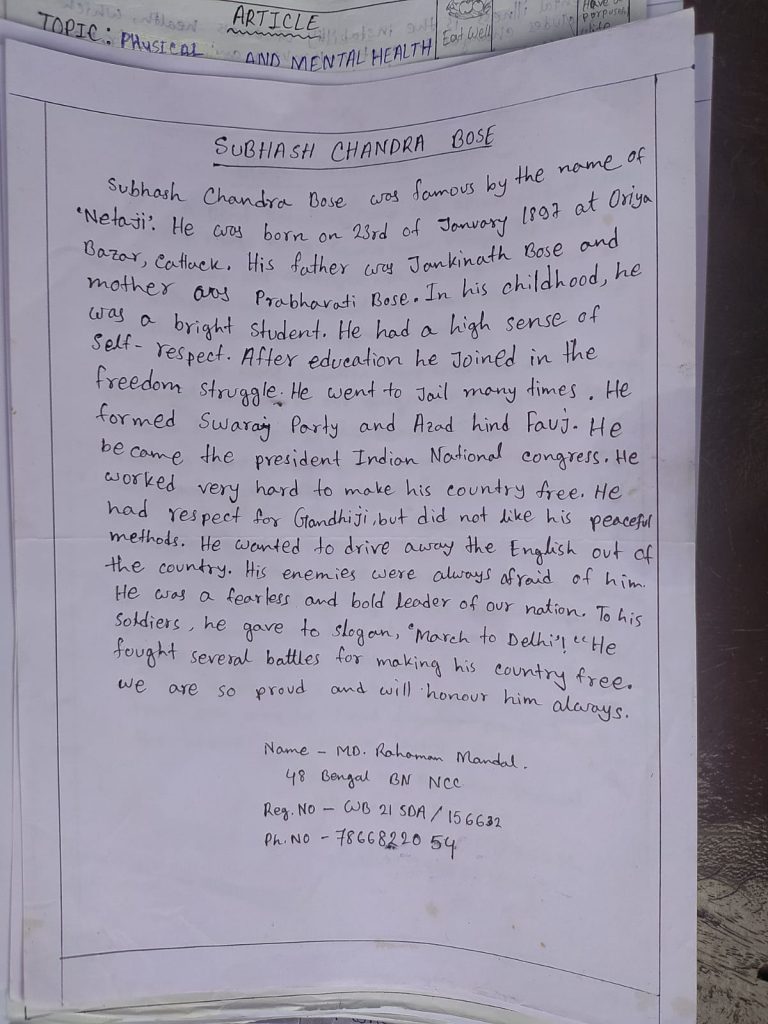 ARTICLE
TOPIC: PHYSICAL AND MENTAL HEALTH
Eat Well
Have a
purpose
life
SUBHASH CHANDRA BOSE
Subhash Chandra Bose was famous by the name of
'Netaji'. He was born on 23rd of January 1897 at Oriya
Bazar, Cattack. His father was Jankinath Bose and
mother was Prabharati Bose. In his childhood, he
was a bright student. He had a high sense of
Self-respect. After education he Joined in the
freedom struggle. He went to Jail many times. He
formed Swaraj Party and Azad hind Fauj. He
became the president Indian National congress. He
worked very hard to make his country free. He
had respect for Gandhiji, but did not like his peaceful
methods. He wanted to drive away the English out of
the country. His enemies were always afraid of him.
He was a fearless and bold leader of our nation. To his
soldiers, he gave to slogan, "March to Delhi"! "He
fought several battles for making his country free.
we are so proud and will honour him always.
Name - MD. Rahaman Mandal.
48 Bengal BN NCC
Reg. NO - WB 21 SDA / 156632
Ph. NO - 7866822054